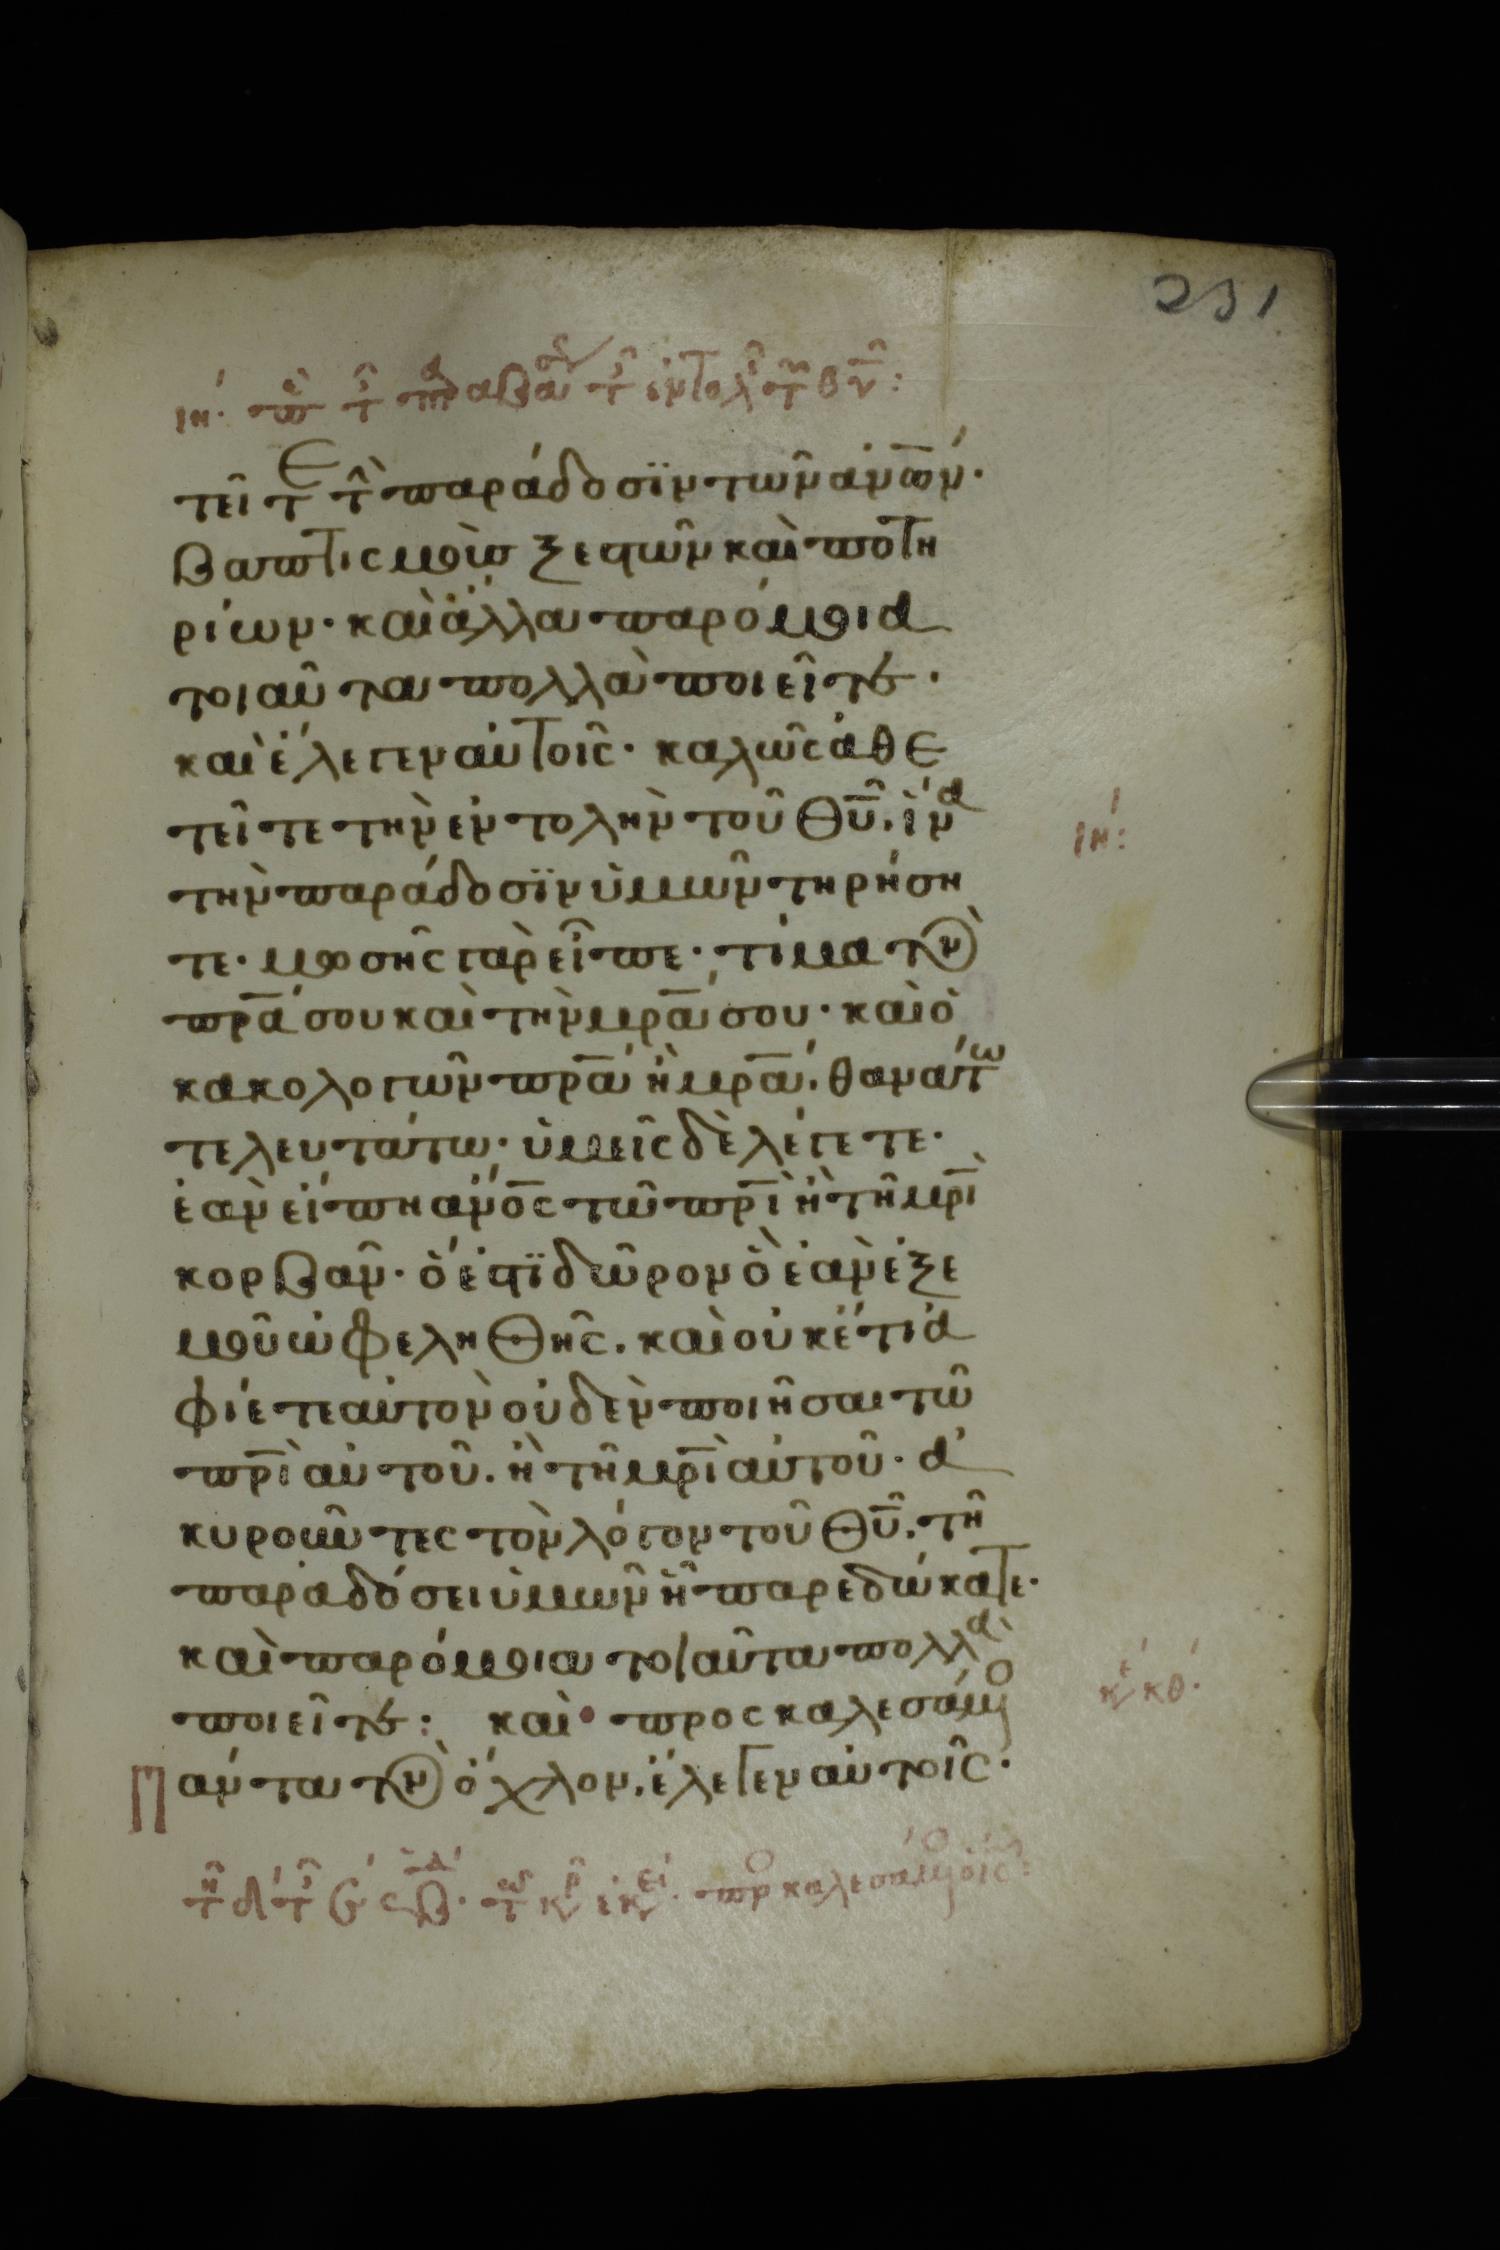 231
ιη· π τ παραβα τ εντολ τ θυ:
τεῖτε τὴ παράδοσϊν τῶν ἀνων·
βαπτισμοὺς ξεστῶν καὶ ποτη
ρίων· καὶ ἄλλα παρόμοια
τοιαῦτα πολλὰ ποιεῖτε·
καὶ ἔλεγεν αὐτοῖς· καλῶς ἀθε
τεῖτε τὴν ἐντολὴν τοῦ θυ. ἵνα
τὴν παράδοσϊν ὑμῶν τηρήση
τε· μωσῆς γὰρ εἶπε· τίμα τὸν
πρα σου καὶ τὴν μρα σου· καὶ ὁ
κακολογῶν πρα ἢ μρα. θανάτω
τελευτάτω· ὑμεῖς δὲ λέγετε·
ἐὰν εἴπη ἄνος τῶ πρι ἢ τῆ μρι
κορβᾶν· ὅ ἐστϊ δῶρον ὃ ἐὰν ἐξ ἐ
μοῦ ὠφεληθῆς. καὶ οὐκέτι ἀ
φίετε αὐτὸν οὐδὲν ποιῆσαι τῶ
πρι αὐτοῦ. ἢ τῆ μρι αὐτοῦ· ἀ
κυροῦντες τὸν λόγον τοῦ θυ. τῆ
παραδόσει ὑμῶν ἧ παρεδώκατε·
καὶ παρόμοια τοιαῦτα πολλὰ
ποιεῖτε: καὶ προσκαλεσάμενο
Πάντα τὸν ὄχλον. ἔλεγεν αὐτοῖς·
ιη:
κε κθ·
προσκαλεσάμενο